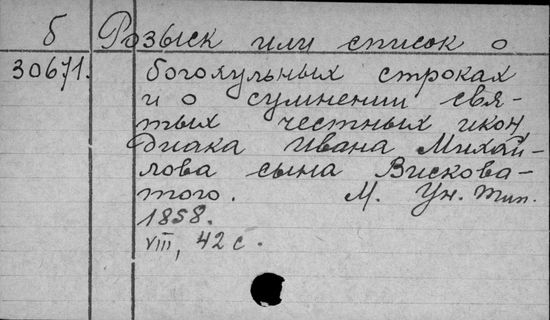 б Розыск или список о
30671. богохульных строках
и о сумнении свя-
тых честных икон
Диака Ивана Михай-
лова сына Вискова-
того. М. Ун. тип.
1858.
VIII, 42 с.